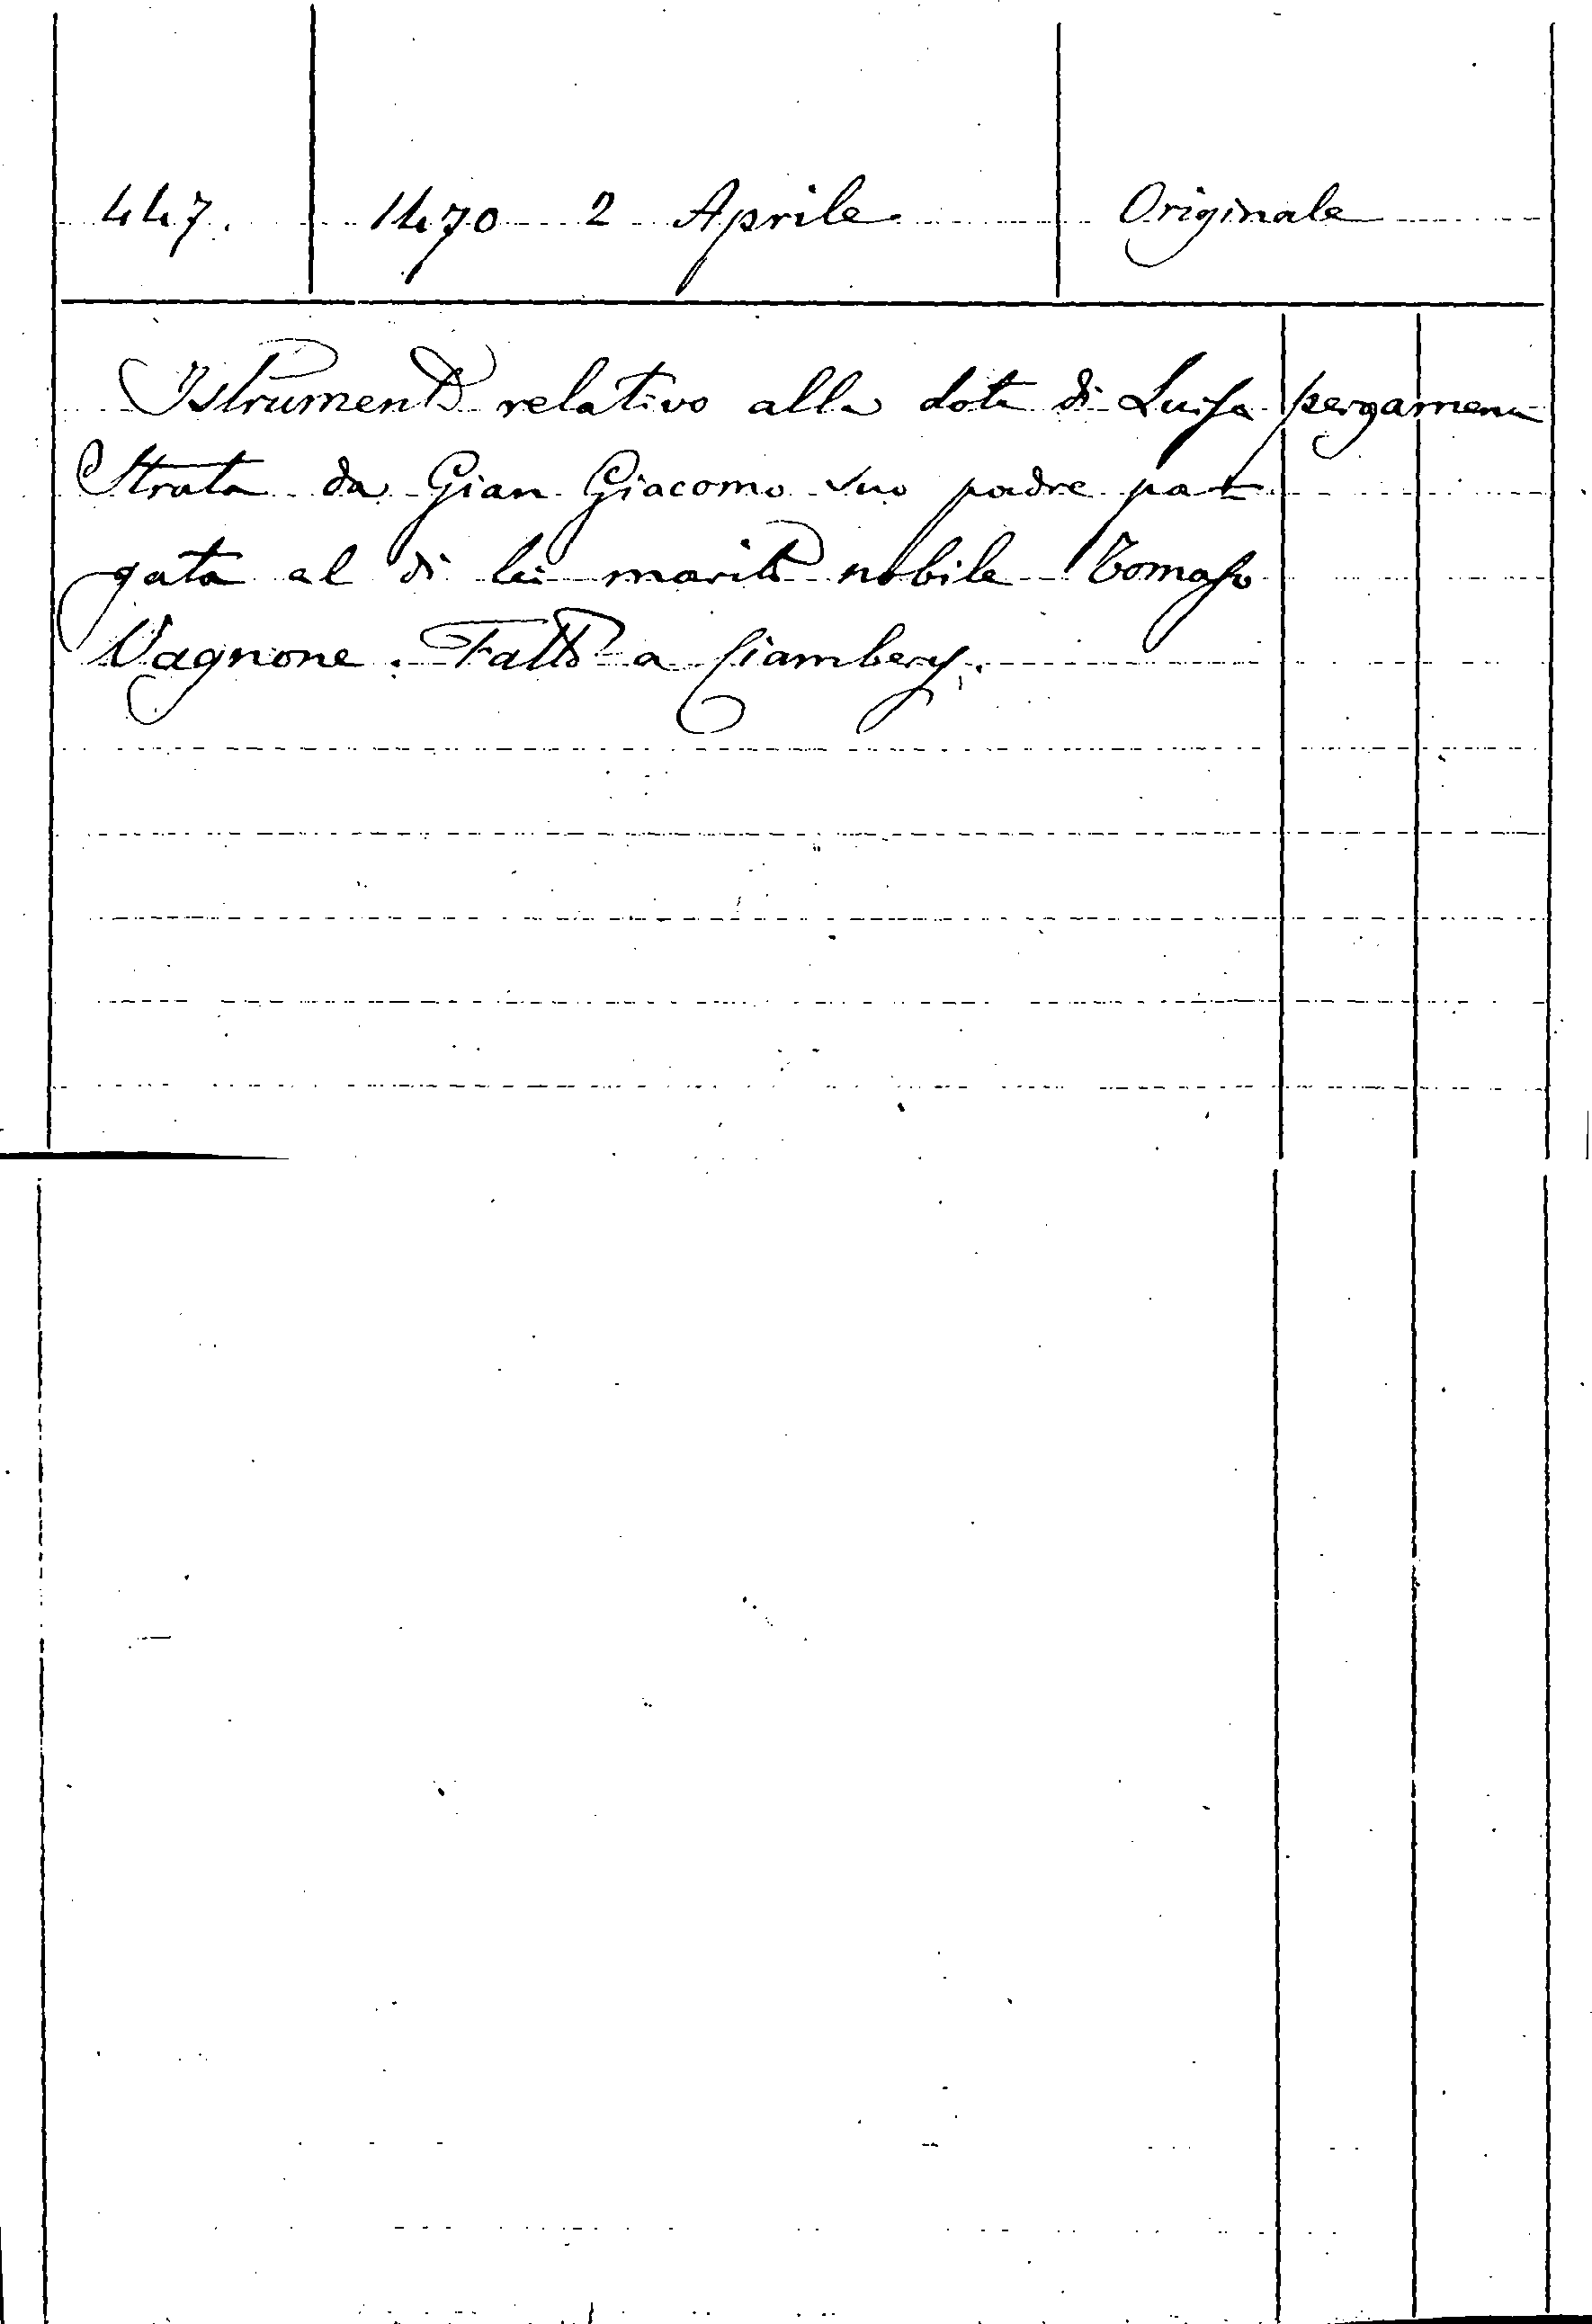 447. 1470 2 Aprile Originale
Istrumento relativo alla dote di Luisa pergamena
Strata da Gian Giacomo suo padre pa-
gata al di lei marito nobile Tomaso
Vagnone. Fatto a Ciambery.